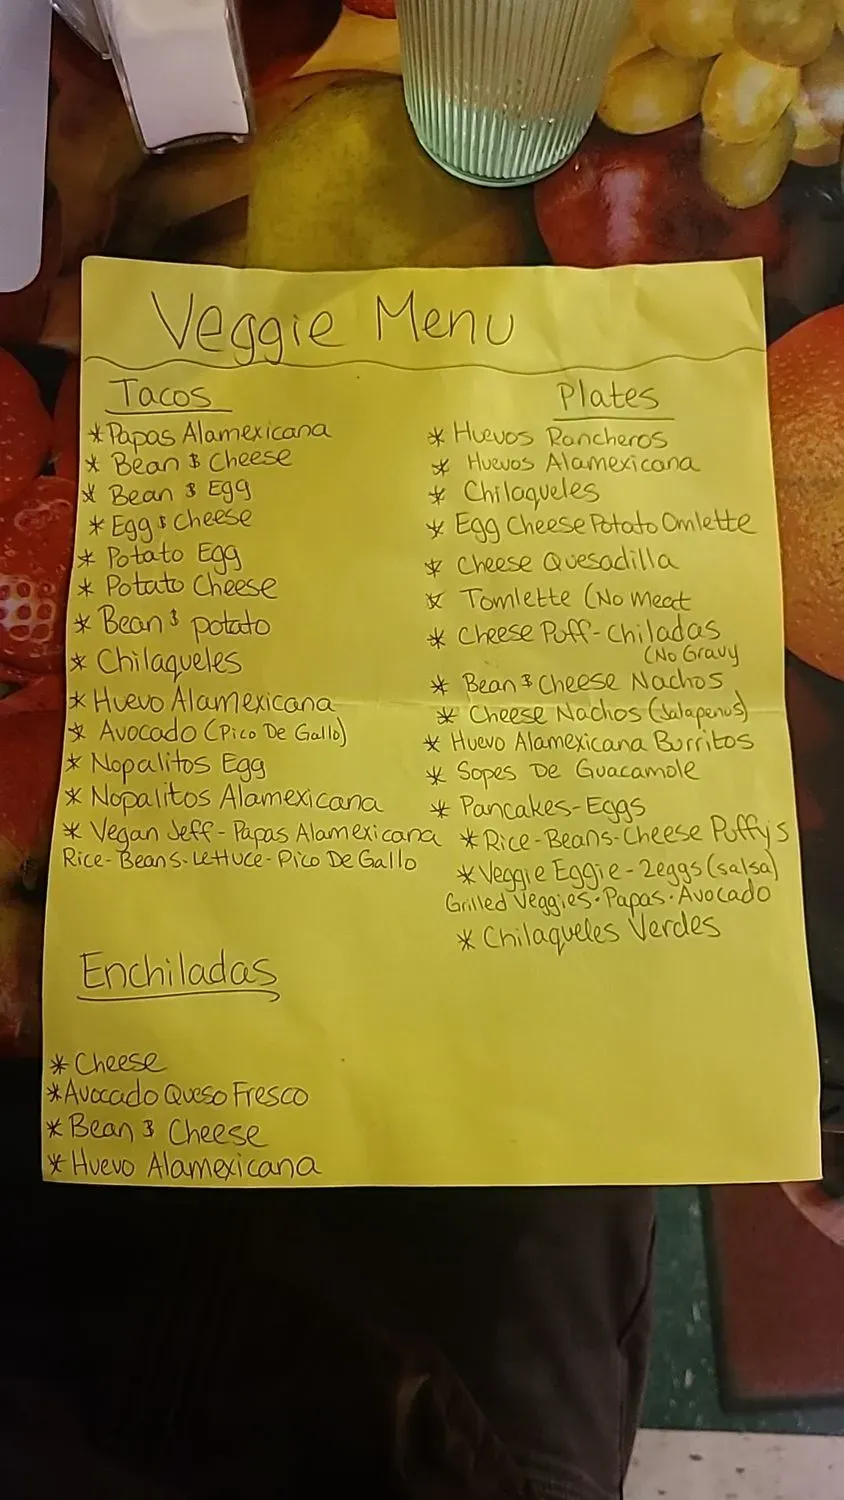 Veggie Menu
Tacos
*Papas Alamexicana
* Bean & Cheese
* Bean & Egg
* Egg & Cheese
* Potato Egg
* Potato Cheese
* Bean & potato
* Chilaqueles
* Huevo Alamexicana
* Avocado (Pico De Gallo)
* Nopalitos Egg
* Nopalitos Alamexicana
* Vegan Jeff - Papas Alamexicana
Rice-Beans-Lettuce-Pico De Gallo
Enchiladas
* Cheese
*Avocado Queso Fresco
* Bean & Cheese
* Huevo Alamexicana
Plates
* Huevos Rancheros
* Huevos Alamexicana
* Chilaqueles
* Egg Cheese Potato Omlette
* Cheese Quesadilla
* Tomlette (No Meat
* Cheese Puff-Chiladas
(No Gravy
* Bean & Cheese Nachos
* Cheese Nachos (Jalapenos)
* Huevo Alamexicana Burritos
* Sopes De Guacamole
* Pancakes-Eggs
* Rice-Beans-Cheese Puffy's
* Veggie Eggie - 2eggs (salsa)
Grilled Veggies · Papas · Avocado
* Chilaqueles Verdes